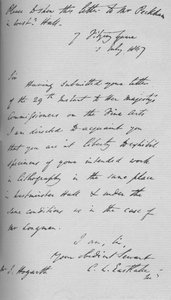 Please to show this letter to Mr Peckham
in Westr Hall.
7
3 July 1847
Sir
Having submitted your letter
of the 29th Instant to Her Majesty's
Commissioners on the Fine Arts
I am directed to acquaint you
that you are at liberty to exhibit
specimens of your intended work
in Lithography in the same place
in Westminster Hall & under the
same conditions as in the case of
Mr Longman.
I am, Sir,
Your obedient Servant
C. L. Eastlake
Mr J. Hogarth